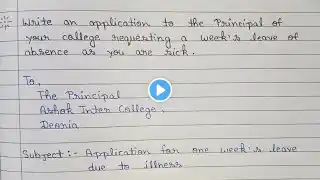 Write an application to the Principal of
your college requesting a week's leave of
absence as you are sick.
To,
The Principal
Ashok Inter College,
Deoria
Subject:- Application for one week's leave
due to illness